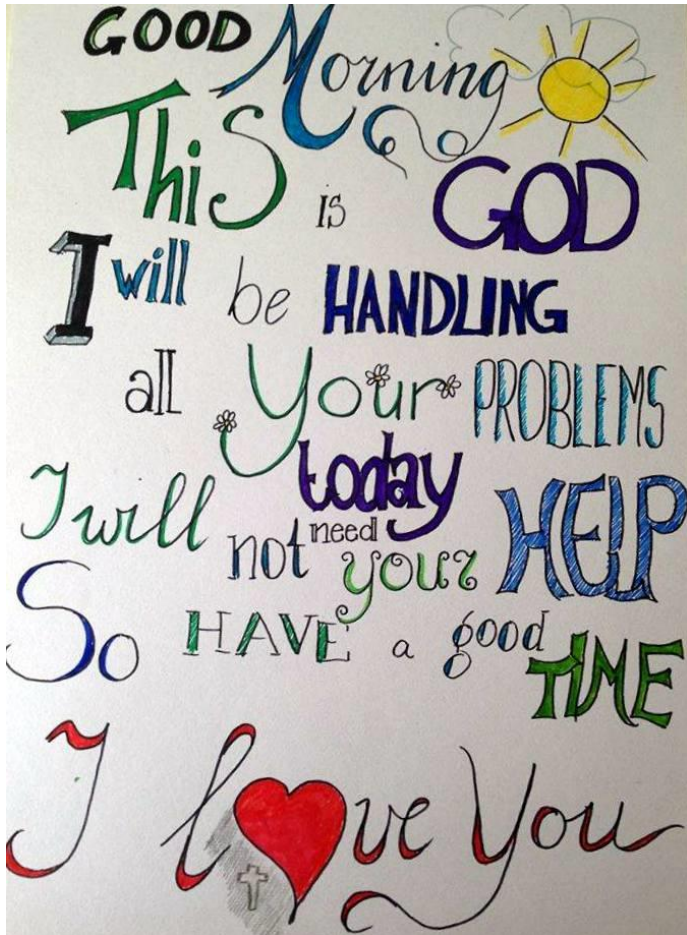 GOOD Morning
THiS is GOD
I will be HANDLING
all Your PROBLEMS
today
I will not need your HELP
So HAVE a good TIME
I love You